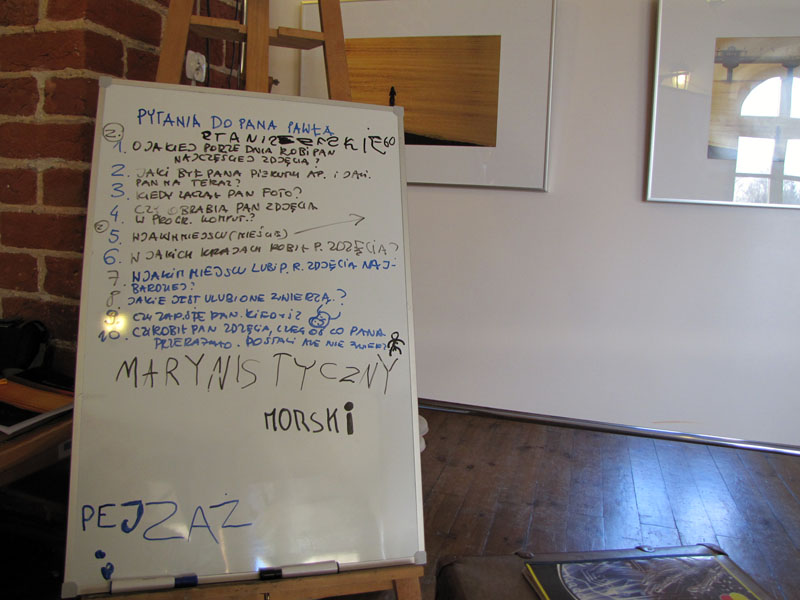 PYTANIA DO PANA PAWŁA
1. O JAKIEJ PORZE DNIA ROBI PAN
NAJCZĘŚCIEJ ZDJĘCIA?
2. JAKI BYŁ PANA PIERWSZY AP. I JAKI
PAN MA TERAZ?
3. KIEDY ZACZĄŁ PAN FOTO?
4. CZY OBRABIA PAN ZDJĘCIA
W PROGR. KOMPUT.?
5. W JAKIM MIEJSCU (MIEŚCIE)
6. W JAKICH KRAJACH ROBIŁ P. ZDJĘCIA?
7. W JAKIM MIEJSCU LUBI P. R. ZDJĘCIA NAJ-
BARDZIEJ?
8. JAKIE JEST ULUBIONE ZWIERZĄ.?
9. CZY PAN KIEDYŚ
10. CZY ROBIŁ PAN ZDJĘCIA, CZEGOŚ CO PANA
PRZERAŻAŁO. POSTALI ALE NIE
MARYNISTYCZNY
MORSKI
PEJZAŻ